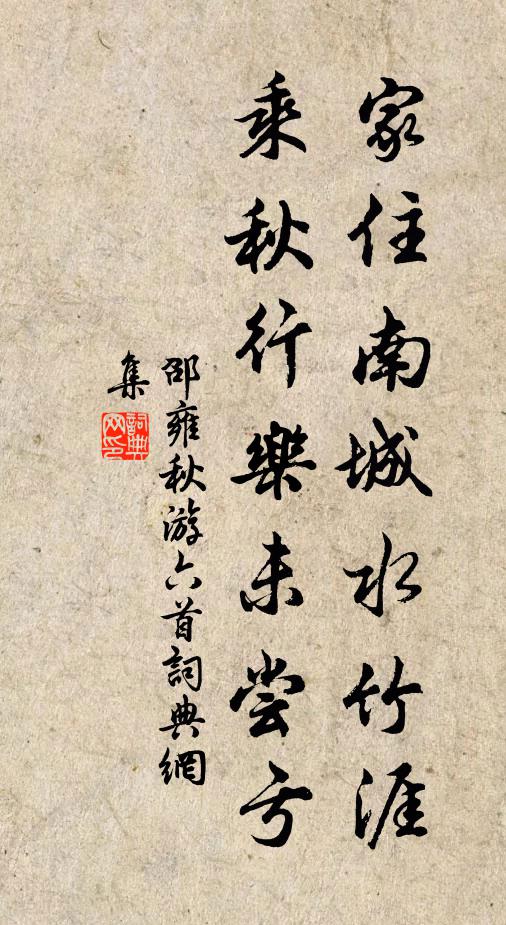 家住南城水竹涯
乘秋行樂未尝亏
邵雍秋游六首詞典網
集
詞典
网印